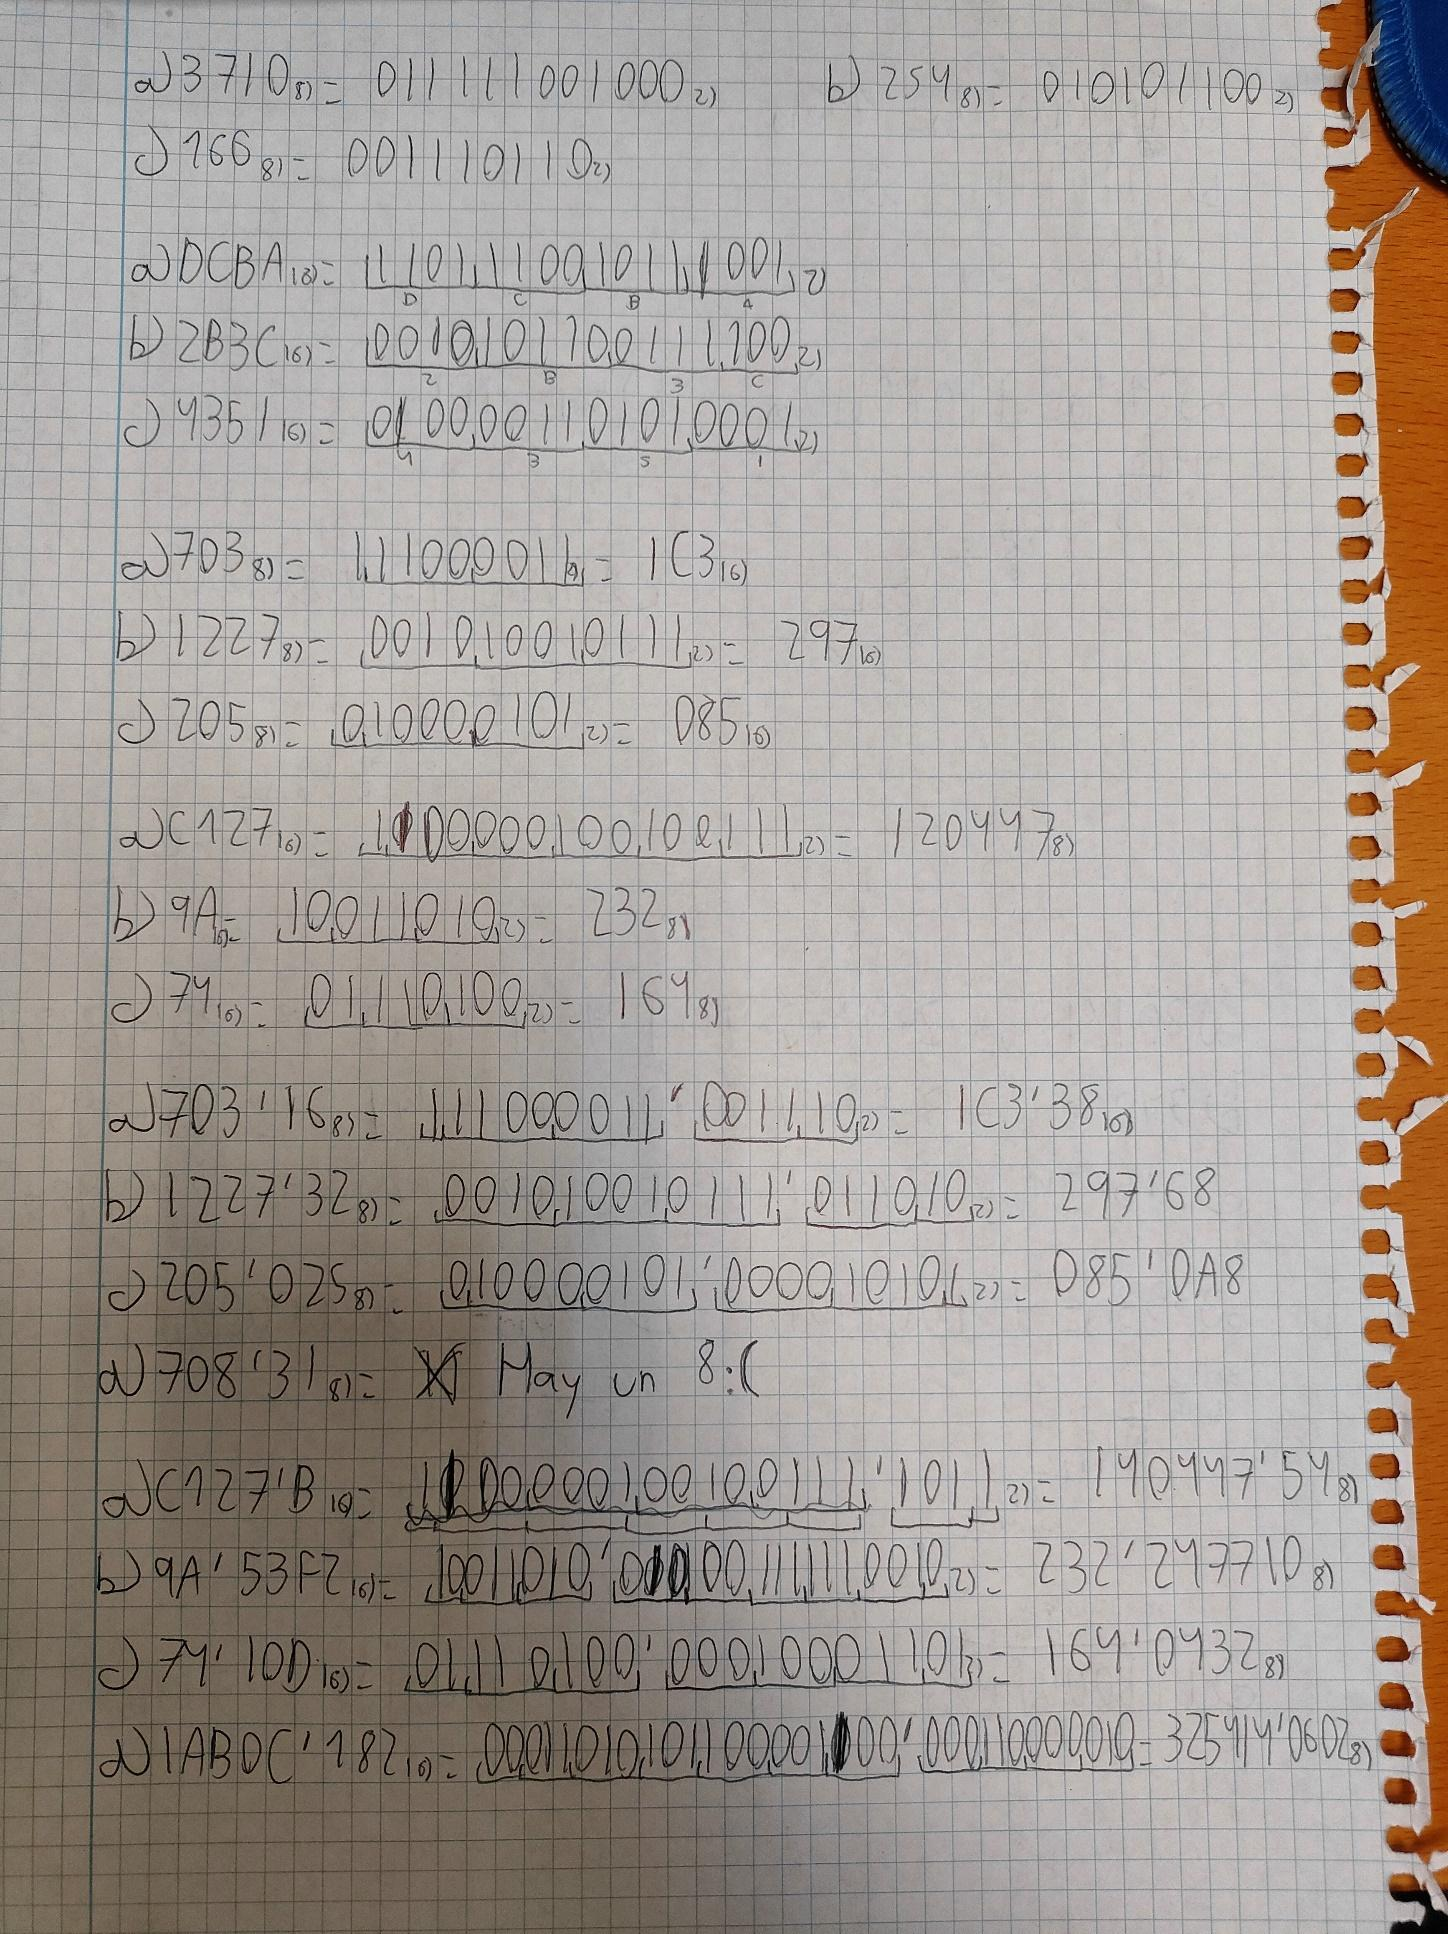 a) 3710 8) = 011111001000 2) b) 254 8) = 010101100 2)
c) 166 8) = 001110110 2)
a) DCBA 16) = 1101,1100,1011,1001, 2)
D C B A
b) 2B3C 16) = 0010,1011,0011,1,100, 2)
2 B 3 C
c) 4351 16) = 0100,0011,0101,0001, 2)
4 3 5 1
a) 703 8) = 1,1100,0011, 2) = 1C3 16)
b) 1227 8) = 0010,1001,0111, 2) = 297 16)
c) 205 8) = 0,1000,0101, 2) = 085 16)
a) C127 16) = 1,100,000,100,100,111, 2) = 120447 8)
b) 9A 16) = 10,011,010, 2) = 232 8)
c) 74 16) = 01,110,100, 2) = 164 8)
a) 703'16 8) = 1,1100,0011,'0011,10, 2) = 1C3'38 16)
b) 1227'32 8) = 0010,1001,0111,'0110,10, 2) = 297'68
c) 205'025 8) = 0,1000,0101,'0000,1010,1, 2) = 085'0A8
a) 708'31 8) = X Hay un 8:(
a) C127'B 16) = 1100,0001,0010,0111,'101,1, 2) = 140447'54 8)
b) 9A'53F2 16) = 10,011,010,'010,100,111,111,001,0, 2) = 232'247710 8)
c) 74'10D 16) = 01,110,100,'000,100,001,101, 2) = 164'0432 8)
a) 1AB0C'182 16) = 00,011,010,101,100,001,100,'000,110,000,010 = 325414'0602 8)